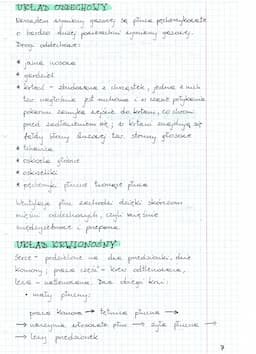 UKŁAD ODDECHOWY
Narządem wymiany gazowej są płuca pęcherzykowate
o bardzo dużej powierzchni wymiany gazowej.
Drogi oddechowe:
• jama nosowa
• gardziel
• krtań - zbudowana z chrząstek, jedna z nich
tzw. nagłośnia jest ruchoma i w czasie połykania
pokarmu zamyka wejście do krtani, co chroni
przed zadławieniem się; w krtani znajdują się
fałdy błony śluzowej tzw. struny głosowe
• tchawica
• oskrzela główne
• oskrzeliki
• pęcherzyki płucne tworzące płuca
Wentylacja płuc zachodzi dzięki skurczom
mięśni oddechowych, czyli mięśnie
międzyżebrowe i przepona.
UKŁAD KRWIONOŚNY
Serce - podzielone na dwa przedsionki, dwie
komory; prawa część - krew odtlenowana,
lewa - utlenowana. Dwa obiegi krwi:
• mały płucny:
prawa komora → tętnica płucna →
→ naczynia włosowate płuc → żyła płucna →
→ lewy przedsionek
7